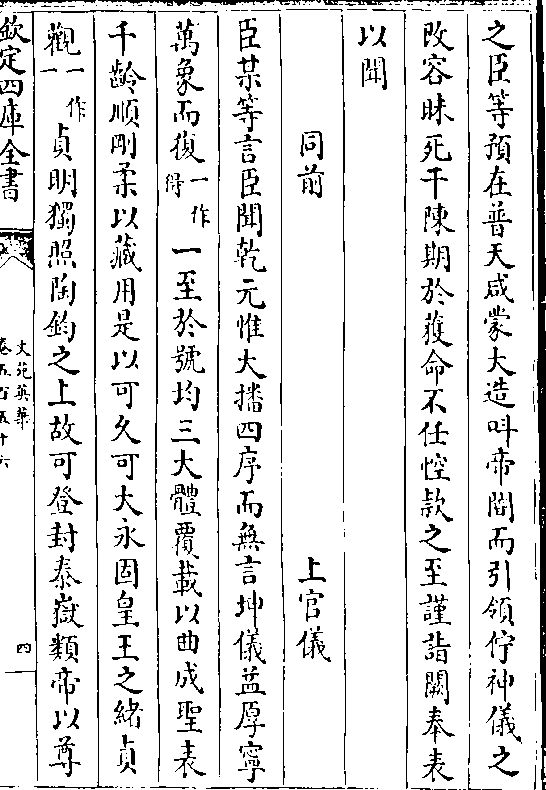 之臣等預在普天咸蒙大造叫帝閽而引領佇神儀之
改容昧死干陳期於蒦命不任悾款之至謹詣闕奉表
以聞
同前 上官儀
臣某等言臣聞乾元惟大播四序而無言坤儀益厚寧
萬象而復一作得一至於號均三大體覆載以曲成聖表
千齡順剛柔以藏用是以可久可大永固皇王之緒貞
觀一作貞明獨照陶鈞之上故可登封泰嶽類帝以尊
欽定四庫全書
文苑英華
卷五百五十六
四